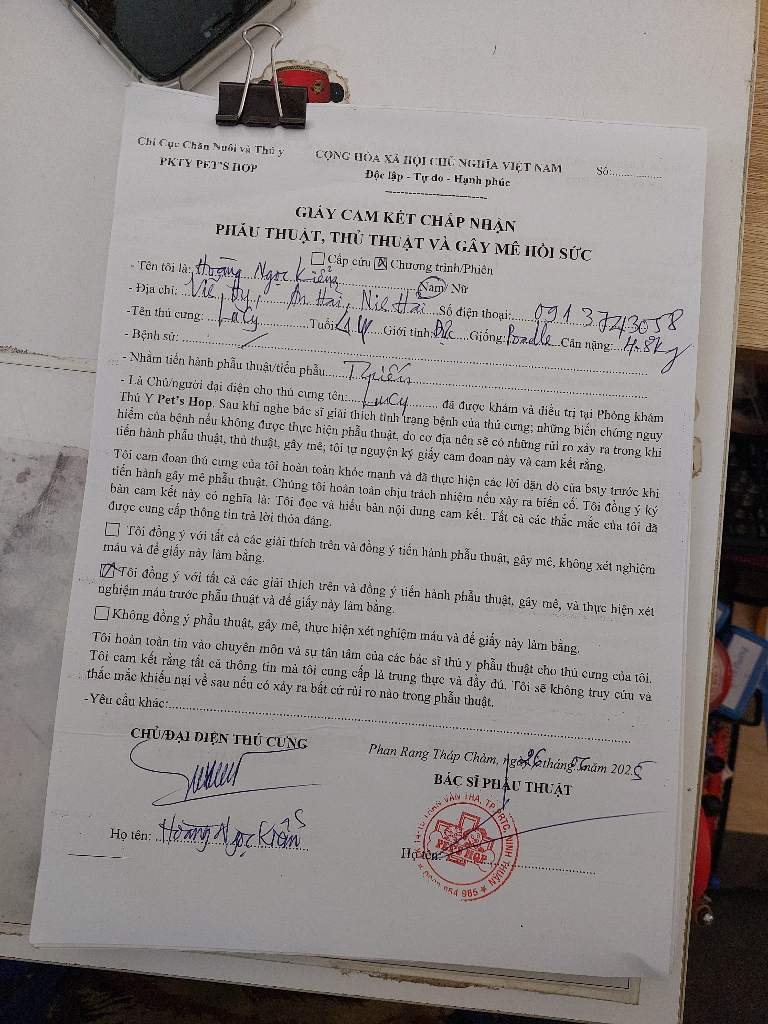 Chi Cục Chăn Nuôi và Thú y
PKTY PET'S HOP
CỘNG HÒA XÃ HỘI CHỦ NGHĨA VIỆT NAM
Độc lập - Tự do - Hạnh phúc
Số:
GIẤY CAM KẾT CHẤP NHẬN
PHẪU THUẬT, THỦ THUẬT VÀ GÂY MÊ HỒI SỨC
Cấp cứu Chương trình/Phiên
- Tên tôi là: Hoàng Ngọc Nam/ Nữ
- Địa chỉ: Số điện thoại: 0913743058
-Tên thú cưng: LaCy Tuổi: Giới tính: Giống: Poodle Cân nặng: 4.8kg
- Bệnh sử:
- Nhằm tiến hành phẫu thuật/tiểu phẫu Thiến
- Là Chủ/người đại diện cho thú cưng tên: LuCy đã được khám và điều trị tại Phòng khám
Thú Y Pet's Hop. Sau khi nghe bác sĩ giải thích tình trạng bệnh của thú cưng; những biến chứng nguy
hiểm của bệnh nếu không được thực hiện phẫu thuật, do cơ địa nên sẽ có những rủi ro xảy ra trong khi
tiến hành phẫu thuật, thủ thuật, gây mê; tôi tự nguyện ký giấy cam đoan này và cam kết rằng.
Tôi cam đoan thú cưng của tôi hoàn toàn khỏe mạnh và đã thực hiện các lời dặn dò của bsty trước khi
tiến hành gây mê phẫu thuật. Chúng tôi hoàn toàn chịu trách nhiệm nếu xảy ra biến cố. Tôi đồng ý ký
bản cam kết này có nghĩa là: Tôi đọc và hiểu bản nội dung cam kết. Tất cả các thắc mắc của tôi đã
được cung cấp thông tin trả lời thỏa đáng.
Tôi đồng ý với tất cả các giải thích trên và đồng ý tiến hành phẫu thuật, gây mê, không xét nghiệm
máu và để giấy này làm bằng.
Tôi đồng ý với tất cả các giải thích trên và đồng ý tiến hành phẫu thuật, gây mê, và thực hiện xét
nghiệm máu trước phẫu thuật và để giấy này làm bằng.
Không đồng ý phẫu thuật, gây mê, thực hiện xét nghiệm máu và để giấy này làm bằng.
Tôi hoàn toàn tin vào chuyên môn và sự tân tâm của các bác sĩ thú y phẫu thuật cho thú cưng của tôi.
Tôi cam kết rằng tất cả thông tin mà tôi cung cấp là trung thực và đầy đủ. Tôi sẽ không truy cứu và
thắc mắc khiếu nại về sau nếu có xảy ra bất cứ rủi ro nào trong phẫu thuật.
-Yêu cầu khác:
CHỦ/ĐẠI DIỆN THÚ CƯNG
Phan Rang Tháp Chàm, ngày 26 tháng 06 năm 2025
BÁC SĨ PHẪU THUẬT
Họ tên: Hoàng Ngọc
Họ tên:
PET'S HOP